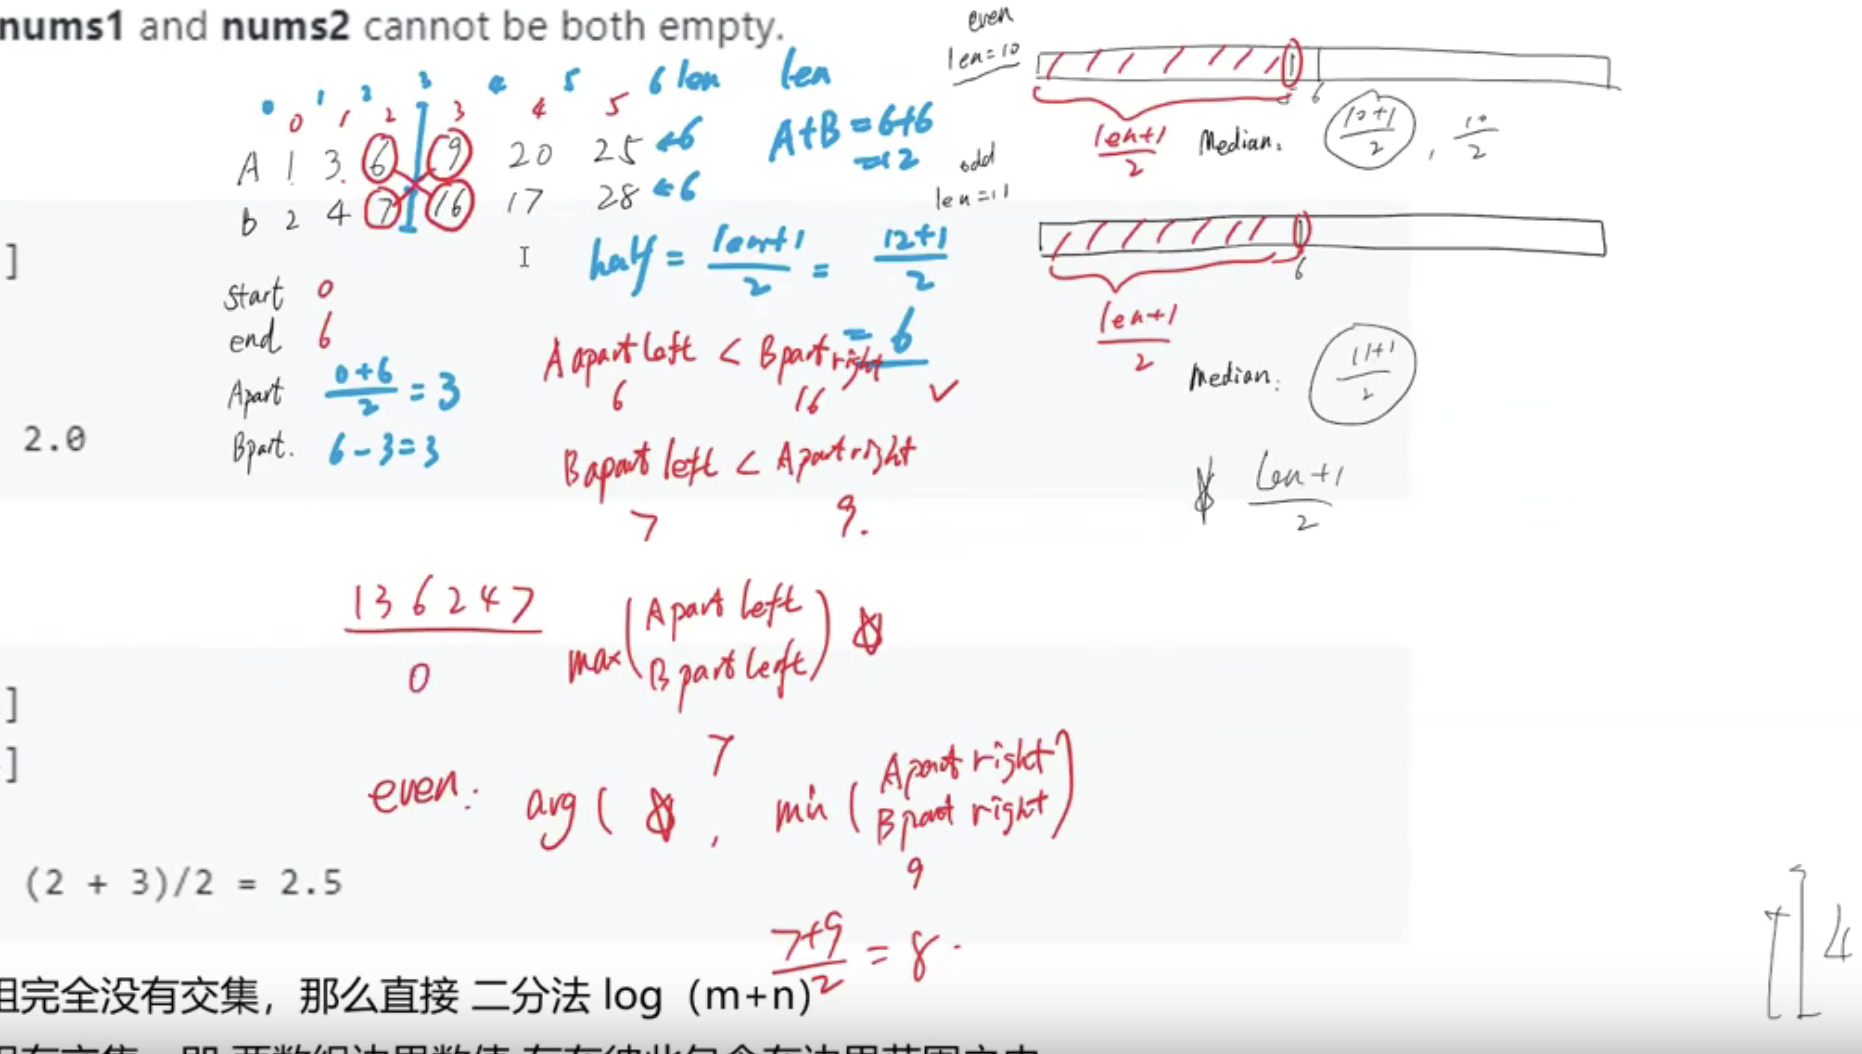 nums1 and nums2 cannot be both empty.
0 1 2 3 4 5 6 len
0 1 2 3 4 5
A 1 3 6 9 20 25 ←6
B 2 4 7 16 17 28 ←6
len
A+B = 6+6
=12
half = len+1/2 = 12+1/2
= 6
Start 0
end 6
Apart 0+6/2 = 3
Bpart. 6-3=3
A apart left < B part right
6 16 ✓
B apart left < A part right
7 9.
1 3 6 2 4 7
0
max(A part left
B part left)
7
even: avg( , min(A part right
B part right)
9
7+9/2 = 8.
even
len=10
6
len+1/2
Median: 10+1/2 , 10/2
odd
len=11
6
len+1/2
Median: 11+1/2
len+1/2
]
2.0
]
]
(2 + 3)/2 = 2.5
4
组完全没有交集，那么直接 二分法 log（m+n）